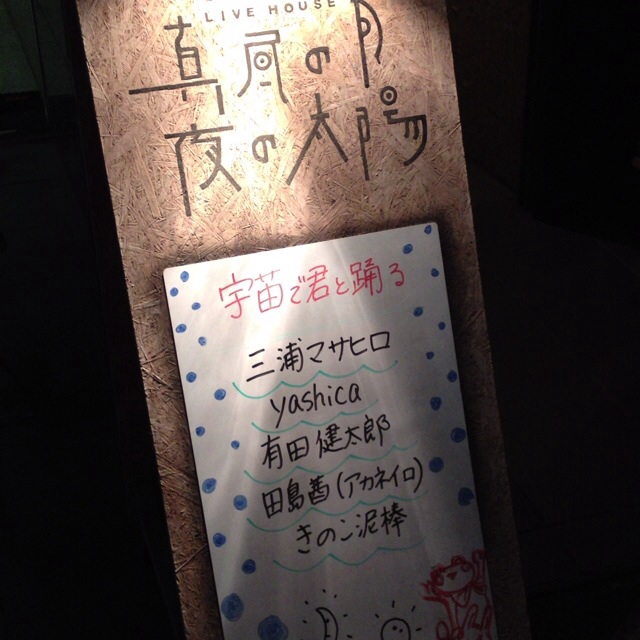 LIVE HOUSE
真昼の月
夜の太陽
宇苗で君と踊る
三浦マサヒロ
yashica
有田健太郎
田島茜(アカネイロ)
きのこ泥棒